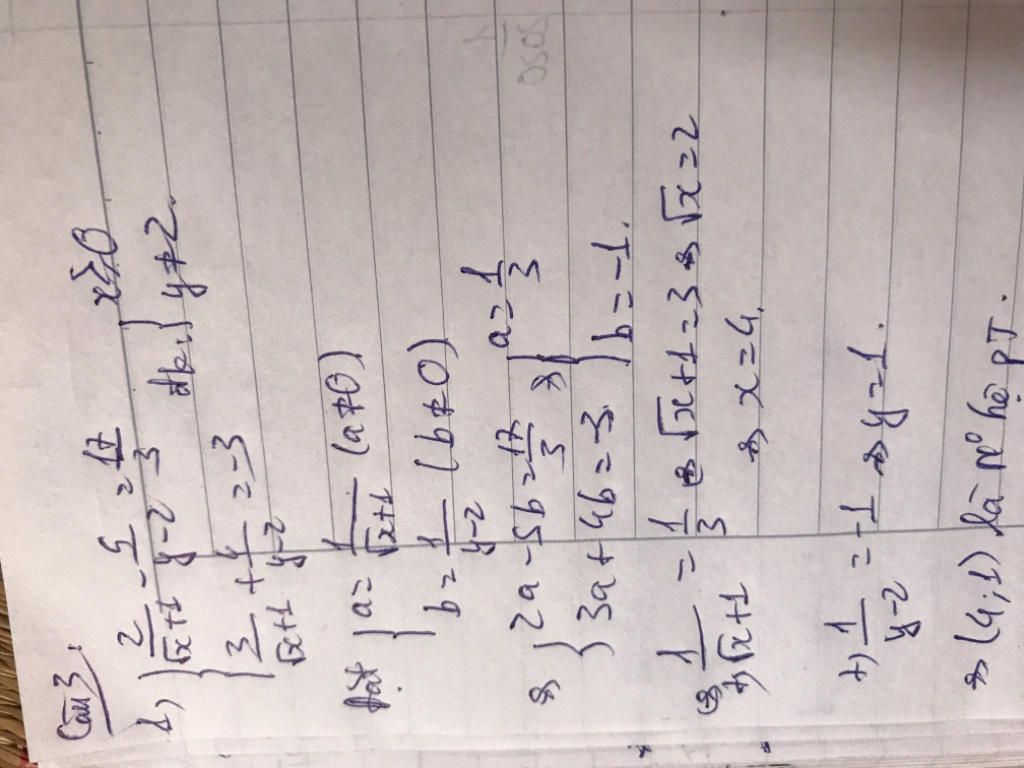 Câu 3.
1) { 2/(√x+1) - 5/(y-2) = 17/3 đk: { x ≥ 0
{ 3/(√x+1) + 4/(y-2) = -3 y ≠ 2.
Đặt { a = 1/(√x+1) (a ≠ 0)
{ b = 1/(y-2) (b ≠ 0)
⇒ { 2a - 5b = 17/3 ⇒ { a = 1/3
{ 3a + 4b = -3. { b = -1.
⇔ +) 1/(√x+1) = 1/3 ⇔ √x+1 = 3 ⇔ √x = 2
⇒ x = 4.
+) 1/(y-2) = -1 ⇒ y = 1.
⇒ (4; 1) là n° hệ PT.